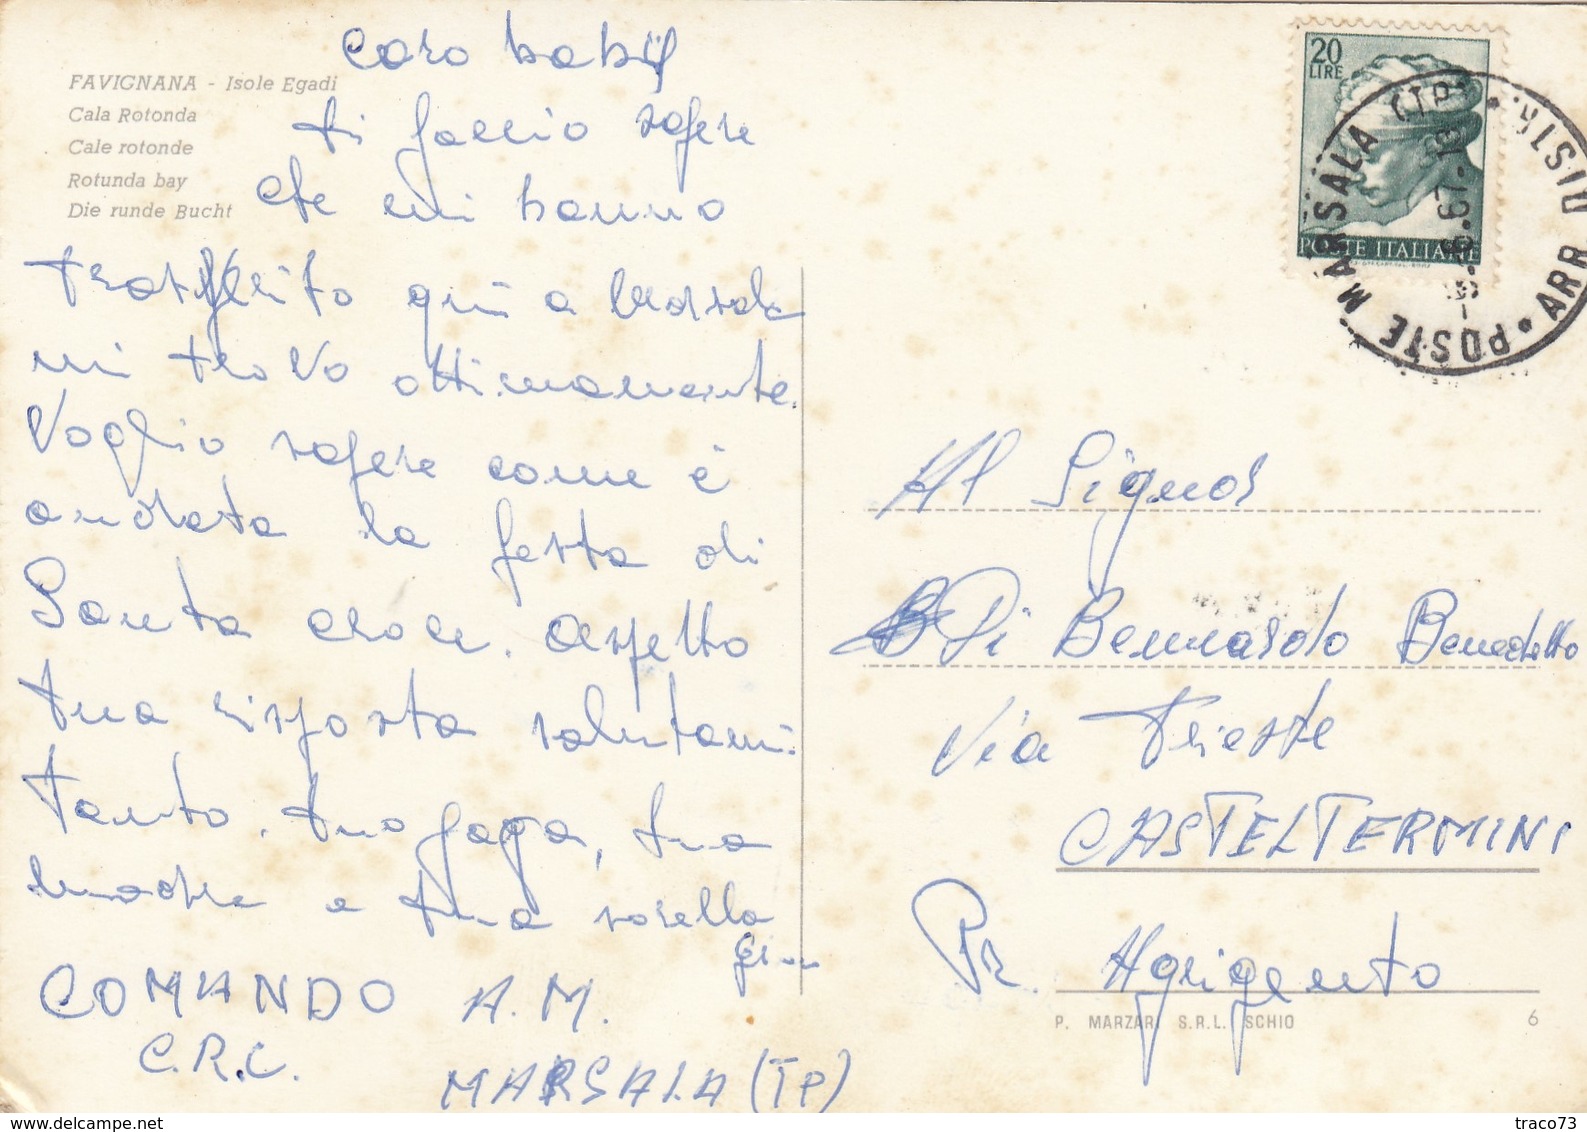 FAVIGNANA - Isole Egadi
Cala Rotonda
Cale rotonde
Rotunda bay
Die runde Bucht
Caro
ti faccio sapere
che mi hanno
trasferito qui a Marsala
mi trovo ottimamente.
Voglio sapere come è
andata la festa di
Santa Croce. Aspetto
tua risposta salutami
tanto, tuo papa, tua
madre e tua sorella
COMANDO A.M.
C.R.C.
MARSALA (TP)
20
LIRE
POSTE ITALIANE
POSTE MARSALA (TP) * ARR DISTR.
Al Signor
Di Bernardo Benedetto
Via Trieste
CASTELTERMINI
Pr. Agrigento
P. MARZARI S.R.L. SCHIO 6
delcampe.net
traco73